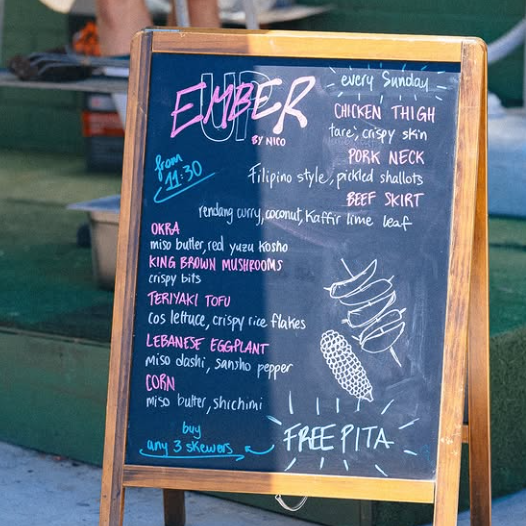 EMBER
UP
BY NICO
every Sunday
from
11:30
CHICKEN THIGH
tare, crispy skin
PORK NECK
Filipino style, pickled shallots
BEEF SKIRT
rendang curry, coconut, Kaffir lime leaf
OKRA
miso butter, red yuzu Kosho
KING BROWN MUSHROOMS
crispy bits
TERIYAKI TOFU
cos lettuce, crispy rice flakes
LEBANESE EGGPLANT
miso dashi, sansho pepper
CORN
miso butter, shichimi
buy
any 3 skewers
FREE PITA